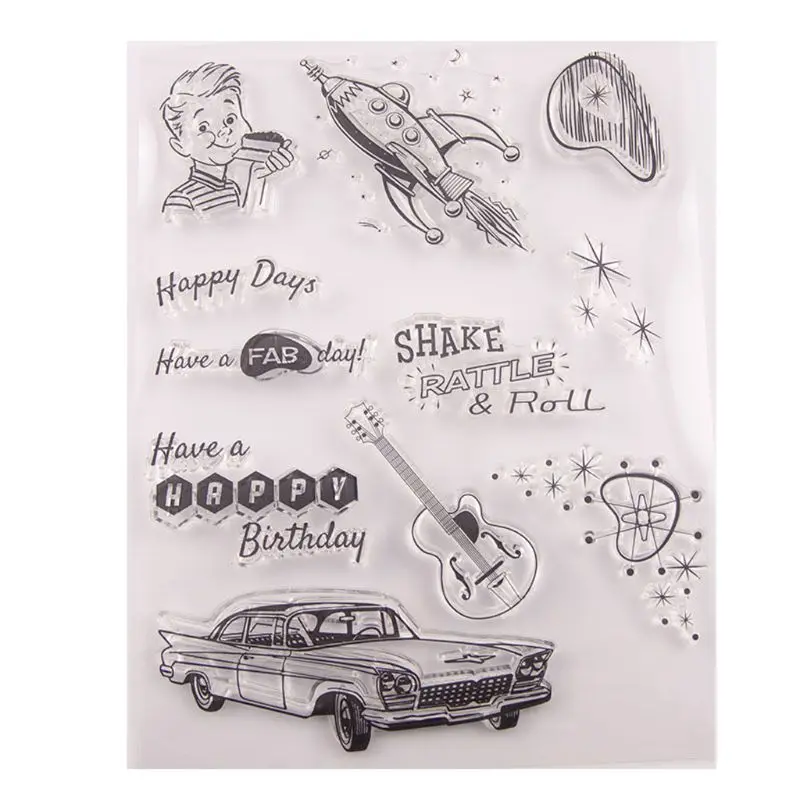 Happy Days
Have a FAB day!
SHAKE
RATTLE
& Roll
Have a
HAPPY
Birthday